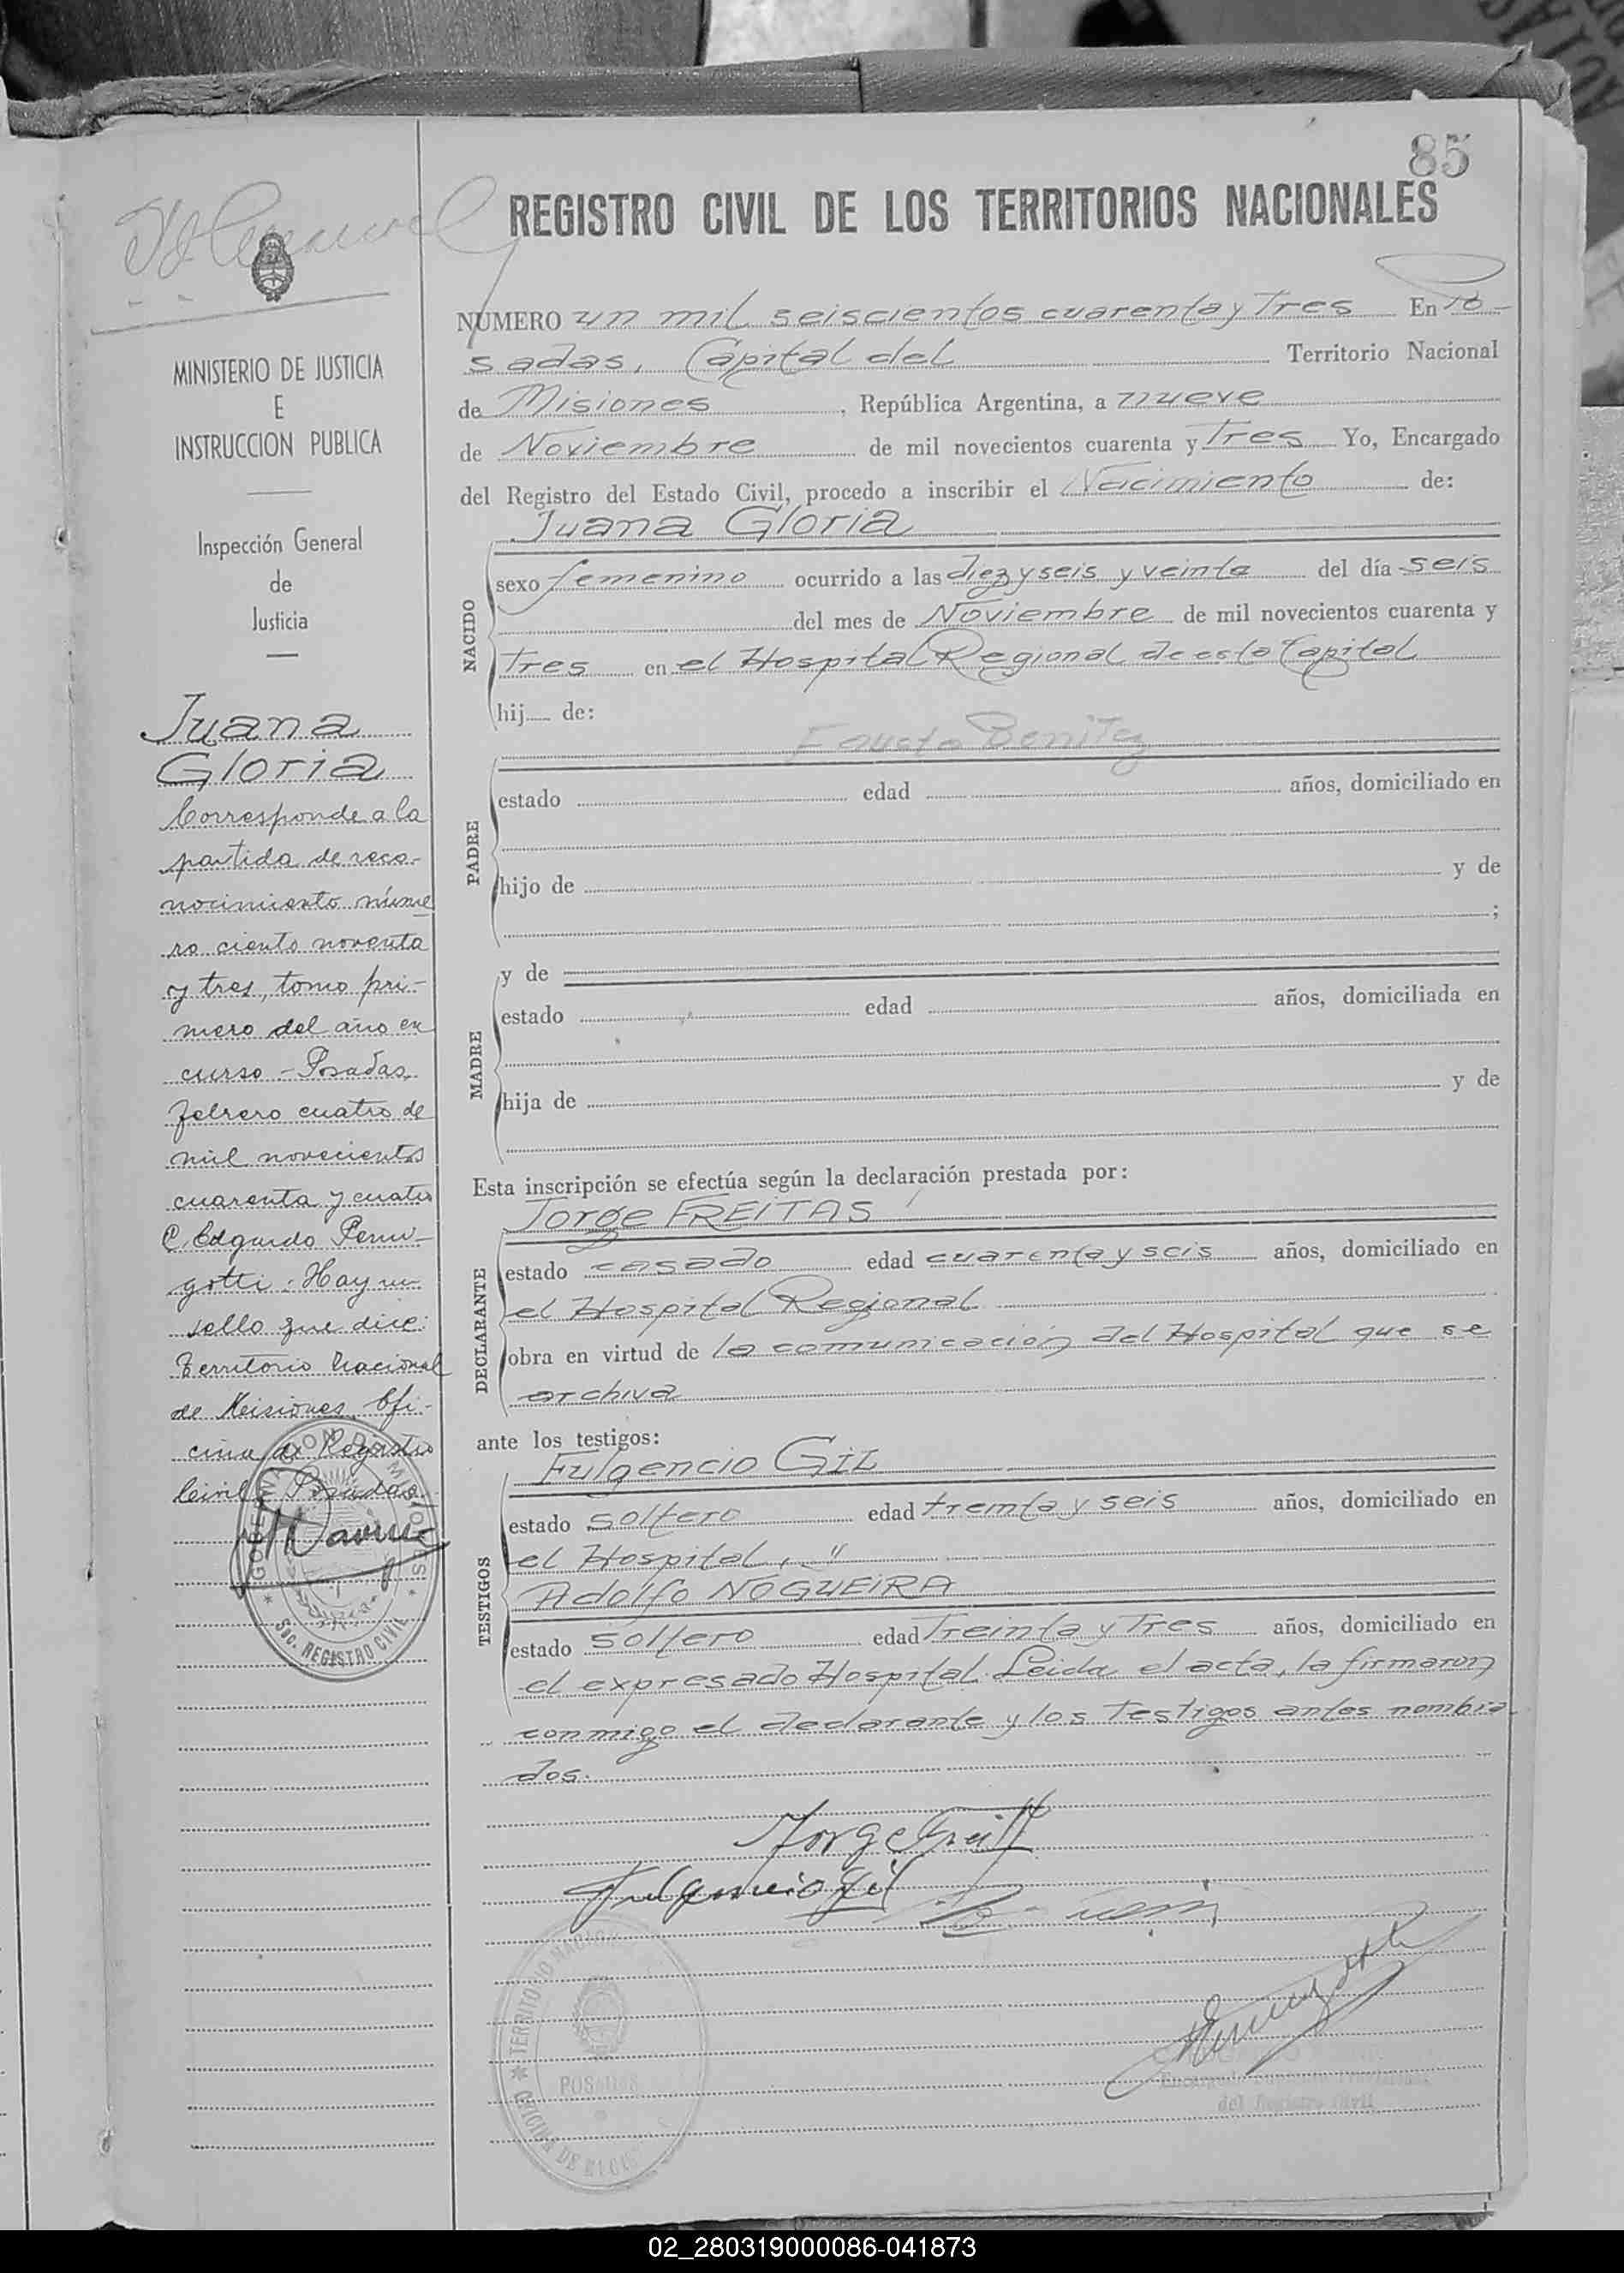 85
REGISTRO CIVIL DE LOS TERRITORIOS NACIONALES
MINISTERIO DE JUSTICIA
E
INSTRUCCION PUBLICA
Inspección General
de
Justicia
Juana
Gloria
Corresponde a la
partida de reco-
nocimiento núme
ro ciento noventa
y tres, tomo pri-
mero del año en
curso - Posadas,
febrero cuatro de
mil novecientos
cuarenta y cuatro
C. Edgardo Peru-
gotti: Hay un
sello que dice:
Territorio Nacional
de Misiones. Ofi-
cina de Registro
Civil. Posadas.
GOBERNACION DE MISIONES
Sec. REGISTRO CIVIL
NUMERO un mil seiscientos cuarenta y Tres En Po-
sadas, Capital del Territorio Nacional
de Misiones, República Argentina, a nueve
de Noviembre de mil novecientos cuarenta y Tres Yo, Encargado
del Registro del Estado Civil, procedo a inscribir el Nacimiento de:
NACIDO
Juana Gloria
sexo femenino ocurrido a las diez y seis y veinte del día seis
del mes de Noviembre de mil novecientos cuarenta y
Tres en el Hospital Regional de esta Capital
hij de:
PADRE
Fausto Benitez
estado edad años, domiciliado en
hijo de y de
;
MADRE
y de
estado edad años, domiciliada en
hija de y de
Esta inscripción se efectúa según la declaración prestada por:
DECLARANTE
Jorge FREITAS
estado casado edad cuarenta y seis años, domiciliado en
el Hospital Regional
obra en virtud de la comunicación del Hospital que se
archiva
ante los testigos:
TESTIGOS
Fulgencio GIL
estado soltero edad treinta y seis años, domiciliado en
el Hospital, "
Adolfo NOGUEIRA
estado soltero edad Treinta y Tres años, domiciliado en
el expresado Hospital. Leida el acta, la firmaron
conmigo el declarante y los Testigos antes nombra-
dos.
Jorge Freitas
Fulgencio Gil
TERRITORIO NACIONAL
POSADAS
del Registro Civil
02_280319000086-041873